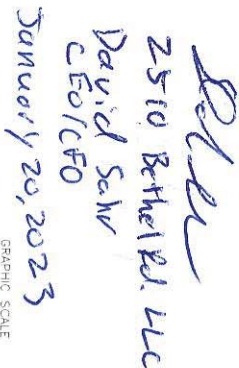 2510 Bethel Rd. LLC
David Sahr
CEO/CFO
January 20, 2023
GRAPHIC SCALE